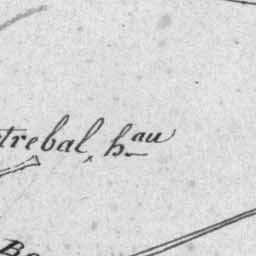 trebal, hau
Be